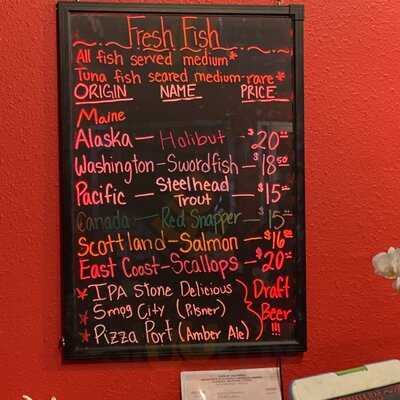 Fresh Fish
All fish served medium*
Tuna fish seared medium-rare*
ORIGIN NAME PRICE
Maine
Alaska - Halibut - $20
Washington - Swordfish - $18.50
Pacific - Steelhead Trout - $15
Canada - Red Snapper - $15
Scottland - Salmon - $16
East Coast - Scallops - $20
* IPA Stone Delicious
* Smog City (Pilsner)
* Pizza Port (Amber Ale)
Draft
Beer
!!!